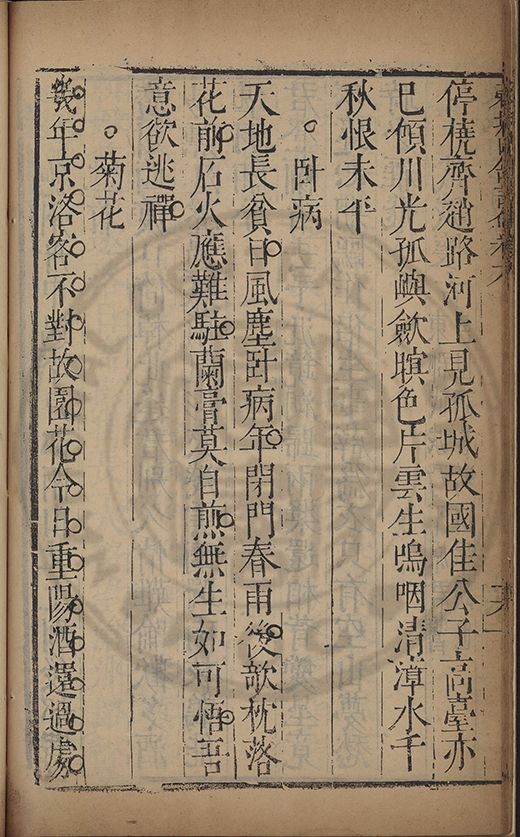 停橈齊趙路河上見孤城故國佳公子高臺亦
已傾川光孤嶼歛暝色片雲生嗚咽清漳水千
秋恨未平
。卧病
天地長貧日風塵卧病年閉門春雨後欹枕落
花前石火應難駐蘭膏莫自煎無生如可悟吾
意欲逃禪
。菊花
幾年京洛客不對故園花今日重陽酒還過處